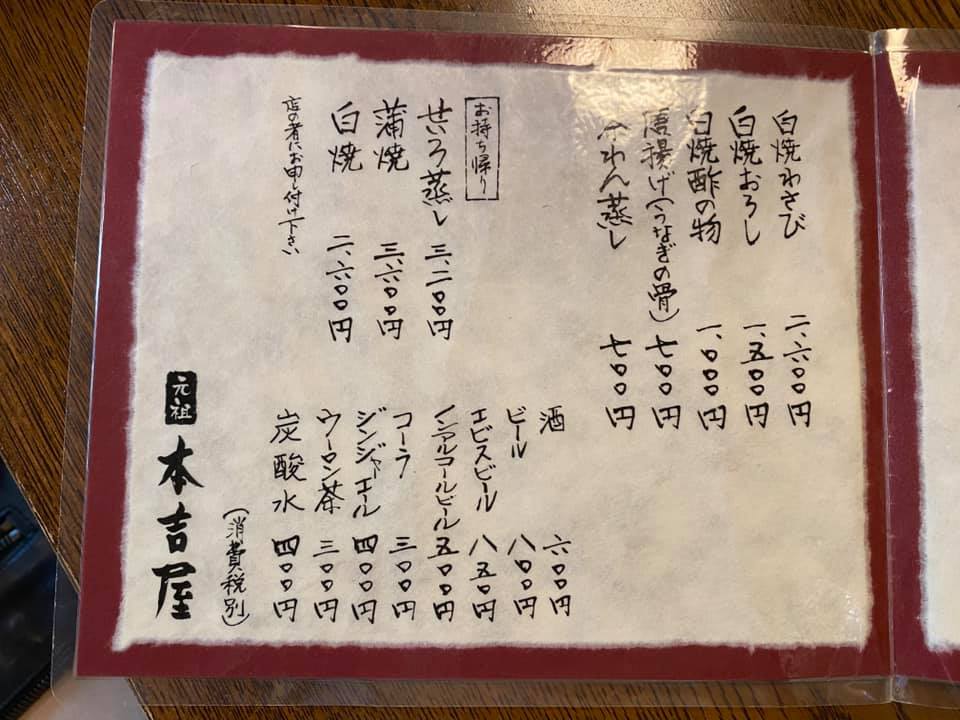 白焼わさび 二、六〇〇円
白焼おろし 一、五〇〇円
白焼酢の物 一、〇〇〇円
唐揚げ(うなぎの骨) 七〇〇円
茶わん蒸し 七〇〇円
酒 六〇〇円
ビール 八〇〇円
エビスビール 八五〇円
ノンアルコールビール 五〇〇円
コーラ 三〇〇円
ジンジャーエール 四〇〇円
ウーロン茶 三〇〇円
炭酸水 四〇〇円
お持ち帰り
せいろ蒸し 三、二〇〇円
蒲焼 三、六〇〇円
白焼 二、六〇〇円
店の者にお申し付け下さい
(消費税別)
元祖
本吉屋